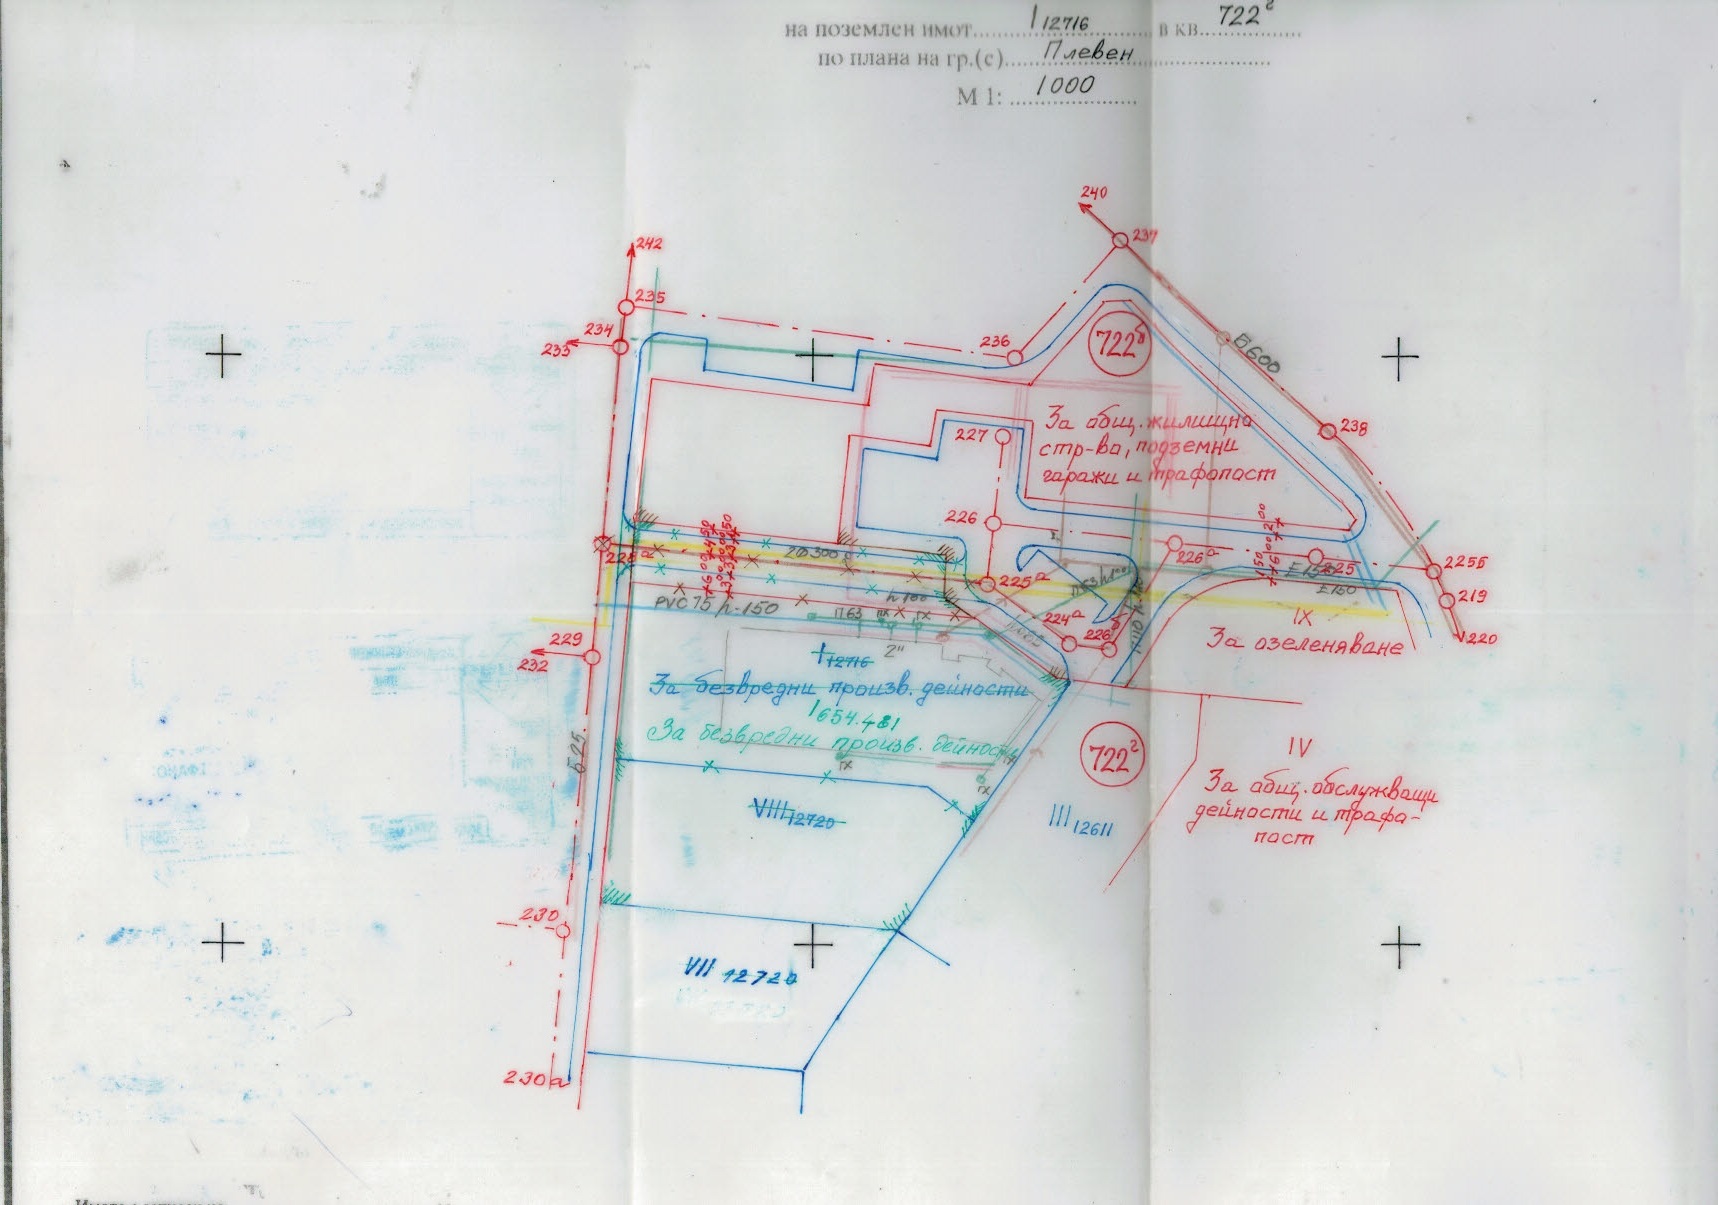 на поземлен имот I 12716 в кв. 722г
по плана на гр.(с) Плевен
М 1: 1000
240
237
242
235
234
233
236
722б
Б600
238
За общ. жилищно
стр-ва, подземни
гаражи и трафопост
227
226
226а
225
225Б
219
220
225а
224а
2Ф300
Е150
PVC 75 h-150
h 100
П 63
ПК
ГХ
2"
IX
За озеленяване
229
232
I 12716
За безвредни произв. дейности
I 654.481
За безвредни произв. дейности
ГХ
ГХ
Б 25
722г
IV
За общ. обслужващи
дейности и трафо-
пост
VIII 12720
III 12611
230
VII 12720
230а